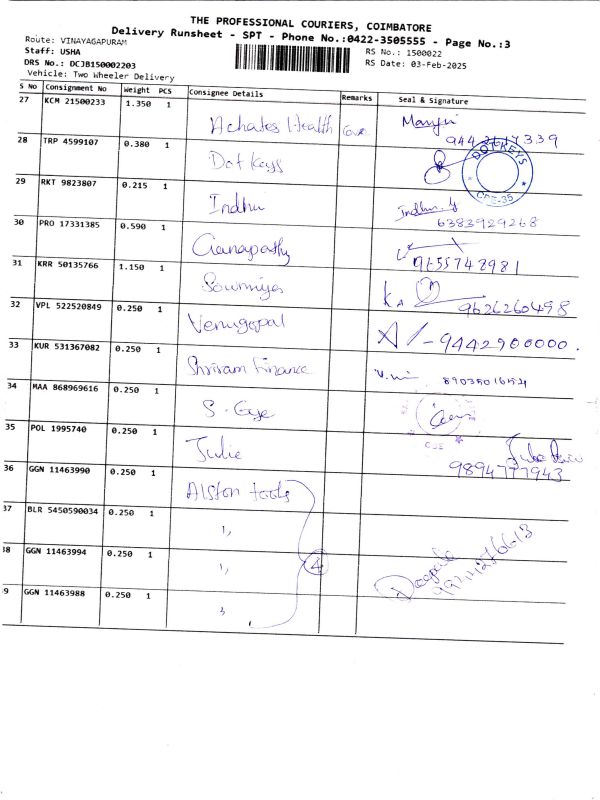 THE PROFESSIONAL COURIERS, COIMBATORE
Delivery Runsheet - SPT - Phone No.:0422-3505555 - Page No.:3
Route: VINAYAGAPURAM
Staff: USHA
DRS No.: DCJB150002203
Vehicle: Two Wheeler Delivery
RS No.: 1500022
RS Date: 03-Feb-2025
S No Consignment No Weight PCS Consignee Details Remarks Seal & Signature
27 KCM 21500233 1.350 1 Achates Health
28 TRP 4599107 0.380 1 Dot Keys DOT KEYS CBE-35
29 RKT 9823807 0.215 1 Indhu Indhu.y 6383929268
30 PRO 17331385 0.590 1 Ganapathy 9655742981
31 KRR 50135766 1.150 1 Sowmiya 9626260498
32 VPL 522520849 0.250 1 Venugopal - 9442900000.
33 KUR 531367082 0.250 1 Shriram Finance
34 MAA 868969616 0.250 1 S. Eye
35 POL 1995740 0.250 1 Julie 9894777943
36 GGN 11463990 0.250 1 Alston tools
37 BLR 5450590034 0.250 1 1,
38 GGN 11463994 0.250 1 1, 4
39 GGN 11463988 0.250 1 Deepak